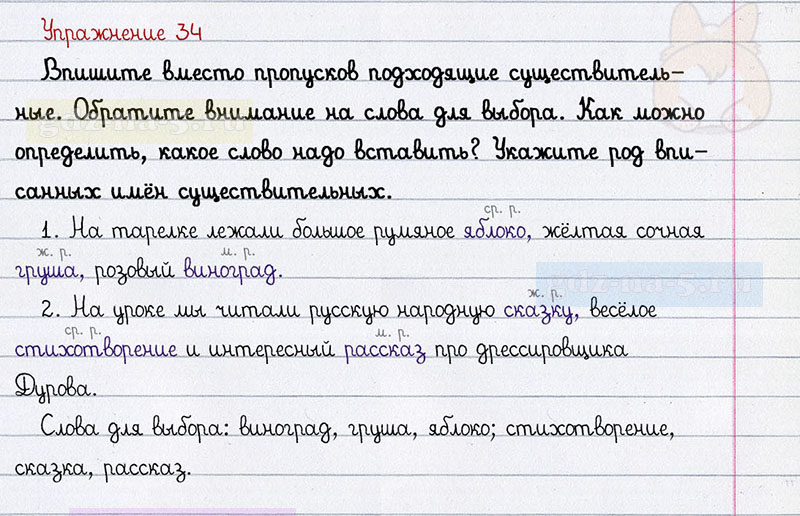 Упражнение 34
Впишите вместо пропусков подходящие существитель-
ные. Обратите внимание на слова для выбора. Как можно
определить, какое слово надо вставить? Укажите род впи-
санных имён существительных.
ср. р.
1. На тарелке лежали большое румяное яблоко, жёлтая сочная
ж. р. м. р.
груша, розовый виноград.
ж. р.
2. На уроке мы читали русскую народную сказку, весёлое
ср. р. м. р.
стихотворение и интересный рассказ про дрессировщика
Дурова.
Слова для выбора: виноград, груша, яблоко; стихотворение,
сказка, рассказ.